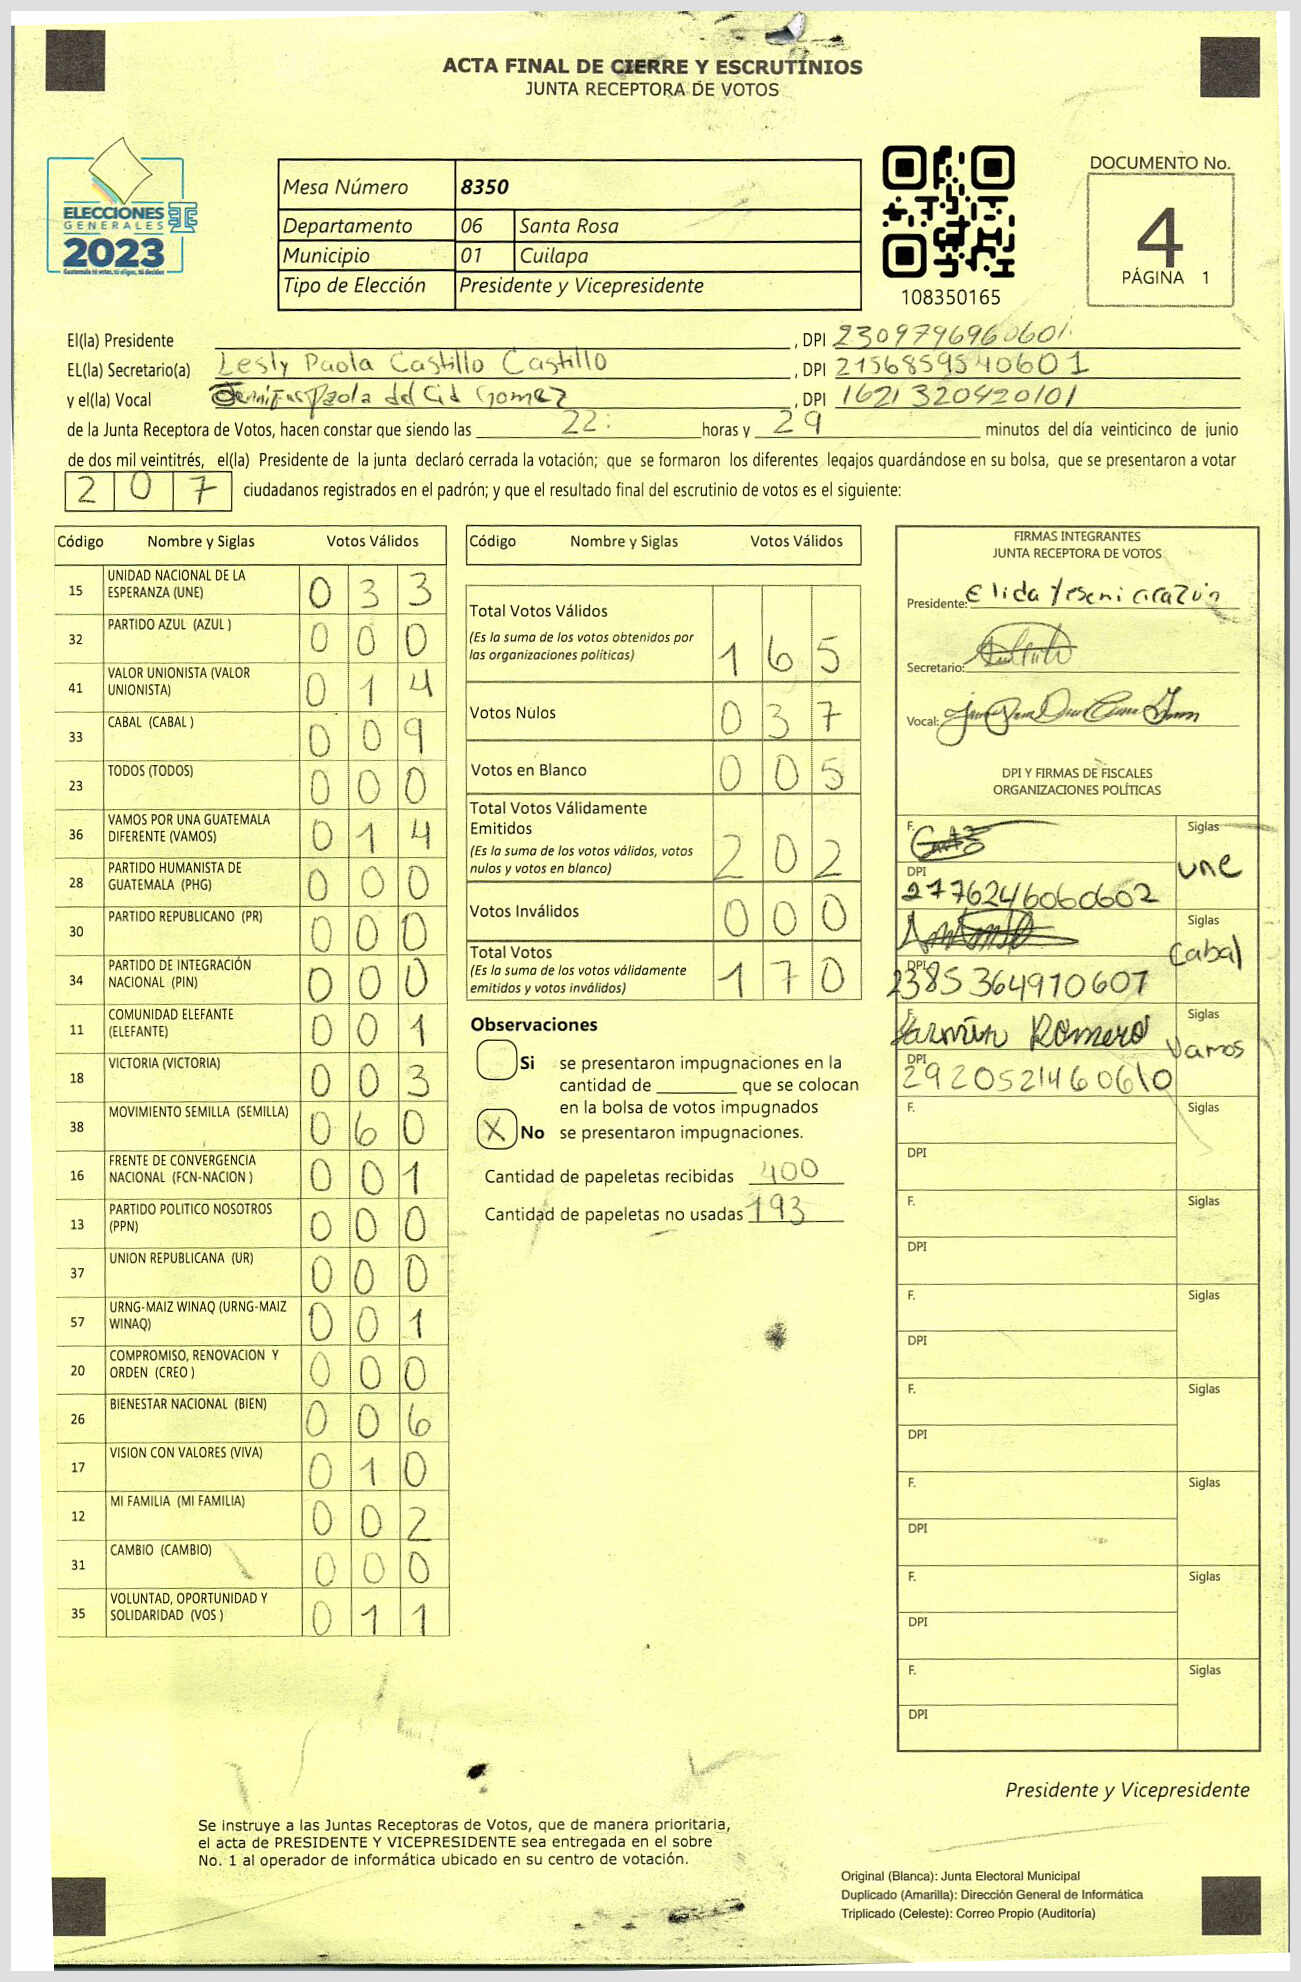 ACTA FINAL DE CIERRE Y ESCRUTINIOS
JUNTA RECEPTORA DE VOTOS
ELECCIONES
GENERALES
2023
Guatemala tú votas, tú eliges, tú decides
Mesa Número 8350
Departamento 06 Santa Rosa
Municipio 01 Cuilapa
Tipo de Elección Presidente y Vicepresidente
108350165
DOCUMENTO No.
4
PÁGINA 1
El(la) Presidente , DPI 2309796960601
EL(la) Secretario(a) Lesly Paola Castillo Castillo , DPI 2156859540601
y el(la) Vocal Jennifer Paola del Cid Gomez , DPI 1621320420101
de la Junta Receptora de Votos, hacen constar que siendo las 22: horas y 29 minutos del día veinticinco de junio
de dos mil veintitrés, el(la) Presidente de la junta declaró cerrada la votación; que se formaron los diferentes legajos guardándose en su bolsa, que se presentaron a votar
207 ciudadanos registrados en el padrón; y que el resultado final del escrutinio de votos es el siguiente:
Código Nombre y Siglas Votos Válidos
15 UNIDAD NACIONAL DE LA ESPERANZA (UNE) 033
32 PARTIDO AZUL (AZUL ) 000
41 VALOR UNIONISTA (VALOR UNIONISTA) 014
33 CABAL (CABAL ) 009
23 TODOS (TODOS) 000
36 VAMOS POR UNA GUATEMALA DIFERENTE (VAMOS) 014
28 PARTIDO HUMANISTA DE GUATEMALA (PHG) 000
30 PARTIDO REPUBLICANO (PR) 000
34 PARTIDO DE INTEGRACIÓN NACIONAL (PIN) 000
11 COMUNIDAD ELEFANTE (ELEFANTE) 001
18 VICTORIA (VICTORIA) 003
38 MOVIMIENTO SEMILLA (SEMILLA) 060
16 FRENTE DE CONVERGENCIA NACIONAL (FCN-NACION ) 001
13 PARTIDO POLITICO NOSOTROS (PPN) 000
37 UNION REPUBLICANA (UR) 000
57 URNG-MAIZ WINAQ (URNG-MAIZ WINAQ) 001
20 COMPROMISO, RENOVACION Y ORDEN (CREO ) 000
26 BIENESTAR NACIONAL (BIEN) 006
17 VISION CON VALORES (VIVA) 010
12 MI FAMILIA (MI FAMILIA) 002
31 CAMBIO (CAMBIO) 000
35 VOLUNTAD, OPORTUNIDAD Y SOLIDARIDAD (VOS ) 011
Código Nombre y Siglas Votos Válidos
Total Votos Válidos
(Es la suma de los votos obtenidos por
las organizaciones políticas) 165
Votos Nulos 037
Votos en Blanco 005
Total Votos Válidamente
Emitidos
(Es la suma de los votos válidos, votos
nulos y votos en blanco) 202
Votos Inválidos 000
Total Votos
(Es la suma de los votos válidamente
emitidos y votos inválidos) 170
Observaciones
Si se presentaron impugnaciones en la
cantidad de ________ que se colocan
en la bolsa de votos impugnados
X No se presentaron impugnaciones.
Cantidad de papeletas recibidas 400
Cantidad de papeletas no usadas 193
FIRMAS INTEGRANTES
JUNTA RECEPTORA DE VOTOS
Presidente: Elida Yeseni
Secretario:
Vocal:
DPI Y FIRMAS DE FISCALES
ORGANIZACIONES POLÍTICAS
F. Siglas
une
DPI 2776246060602
Siglas
Cabal
DPI 2385364970607
F. Yasmin Romero Siglas
Vamos
DPI 2920521460610
F. Siglas
DPI
F. Siglas
DPI
F. Siglas
DPI
F. Siglas
DPI
F. Siglas
DPI
F. Siglas
DPI
F. Siglas
DPI
Presidente y Vicepresidente
Se instruye a las Juntas Receptoras de Votos, que de manera prioritaria,
el acta de PRESIDENTE Y VICEPRESIDENTE sea entregada en el sobre
No. 1 al operador de informática ubicado en su centro de votación.
Original (Blanca): Junta Electoral Municipal
Duplicado (Amarilla): Dirección General de Informática
Triplicado (Celeste): Correo Propio (Auditoría)